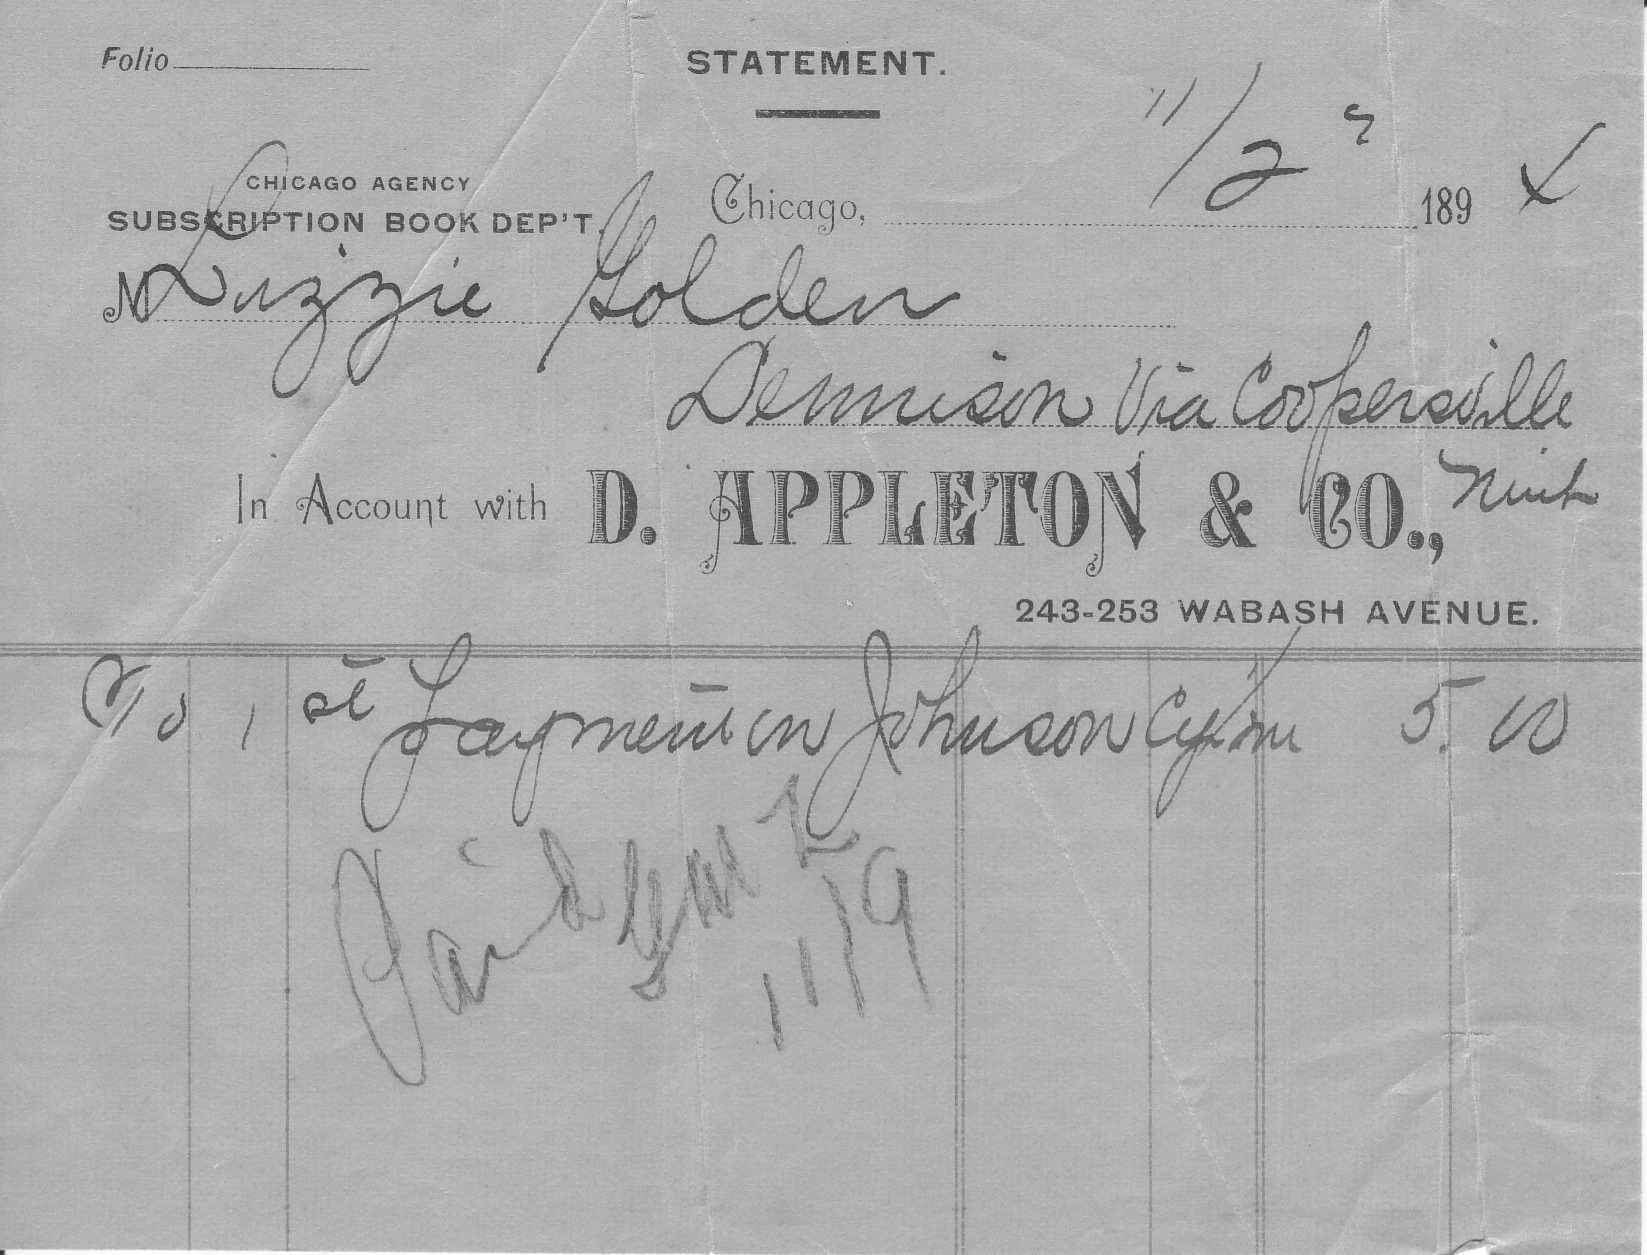 Folio
STATEMENT.
11/2 189 4
CHICAGO AGENCY
SUBSCRIPTION BOOK DEP'T.
Chicago,
M Lizzie Golden
Dennison Via Coopersville
Mich
In Account with D. APPLETON & CO.,
243-253 WABASH AVENUE.
To 1st Payment on Johnson 5.00
Paid 11/9